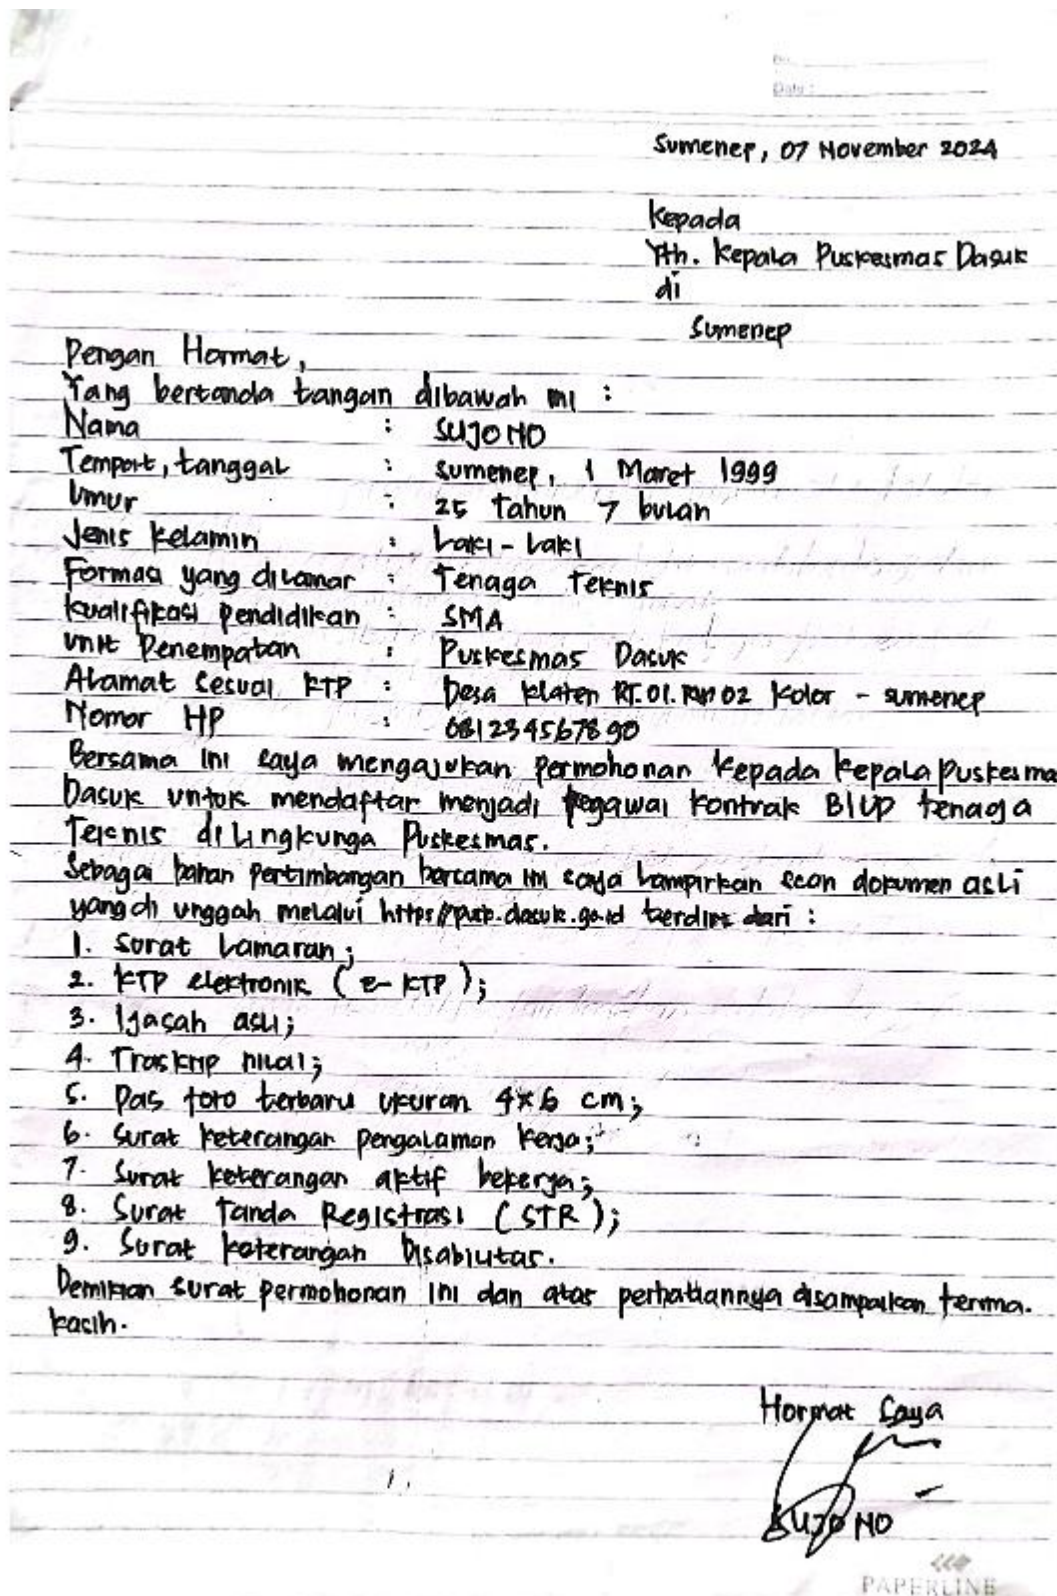 No.
Date :
Sumenep, 07 November 2024
Kepada
Yth. Kepala Puskesmas Dasuk
di
Sumenep
Dengan Hormat,
Yang bertanda tangan dibawah ini :
Nama : SUJONO
Tempat, tanggal : Sumenep, 1 Maret 1999
Umur : 25 tahun 7 bulan
Jenis Kelamin : Laki-Laki
Formasi yang dilamar : Tenaga Teknis
Kualifikasi Pendidikan : SMA
Unit Penempatan : Puskesmas Dasuk
Alamat Sesuai KTP : Desa Klaten RT.01. RW 02 Kolor - Sumenep
Nomor HP : 081234567890
Bersama ini saya mengajukan permohonan kepada kepala Puskesma
Dasuk untuk mendaftar menjadi pegawai kontrak BLUD tenaga
Teknis dilingkunga Puskesmas.
Sebagai bahan pertimbangan bersama ini saya lampirkan scan dokumen asli
yang di unggah melalui terdiri dari :
1. Surat Lamaran;
2. KTP elektronik (e-KTP);
3. Ijasah asli;
4. Traskrip nilai;
5. Pas foto terbaru ukuran 4x6 cm;
6. Surat keterangan pengalaman kerja;
7. Surat keterangan aktif bekerja;
8. Surat Tanda Registrasi (STR);
9. Surat keterangan Disabilitas.
Demikian surat permohonan ini dan atas perhatiannya disampaikan terima.
kasih.
Hormat Saya
SUJONO
PAPERLINE